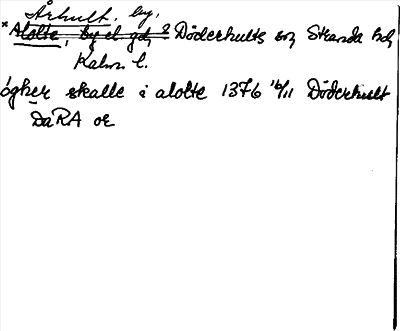 Århult, by,
*Alolte, by el. gd, ? Döderhults sn, Stranda hd,
Kalm. l.
ógher skalle i alolte 1376 16/11 Döderhult
DaRA or